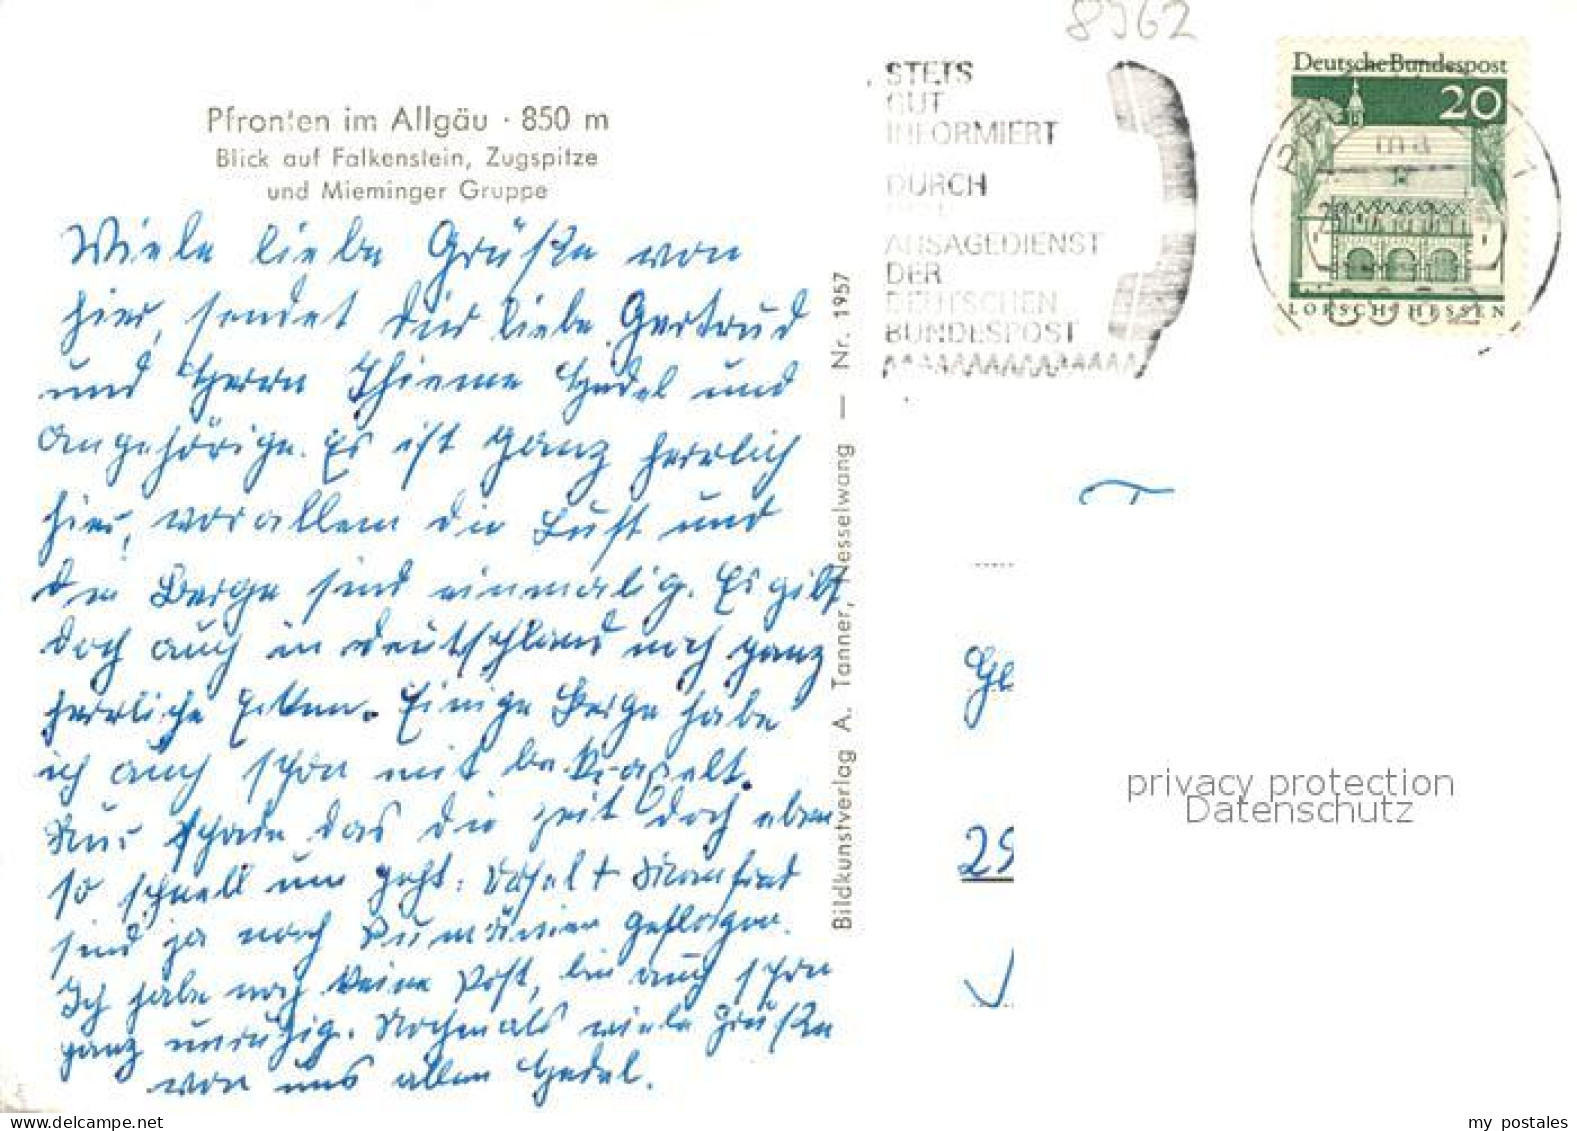 8962
Pfronten im Allgäu · 850 m
Blick auf Falkenstein, Zugspitze
und Mieminger Gruppe
Viele liebe Grüße von
hier, sendet dir liebe Gertrud
und Herrn Thieme Hedel und
Angehörige. Es ist ganz herrlich
hier, vor allem die Luft und
die Berge sind einmalig. Es gibt
doch auch in Deutschland noch ganz
herrliche Ecken. Einige Berge habe
ich auch schon mit bekraxelt.
Nur schade das die Zeit doch eben
so schnell um geht. + Manfred
sind ja nach Rumänien geflogen.
Ich habe noch keine Post, bin auch schon
ganz unruhig. Nochmals viele Grüße
von uns allen Hedel.
Bildkunstverlag A. Tanner, Nesselwang — Nr. 1957
STETS
GUT
INFORMIERT
DURCH
ANSAGEDIENST
DER
DEUTSCHEN
BUNDESPOST
Deutsche Bundespost
20
LORSCH/HESSEN
privacy protection
Datenschutz
my postales